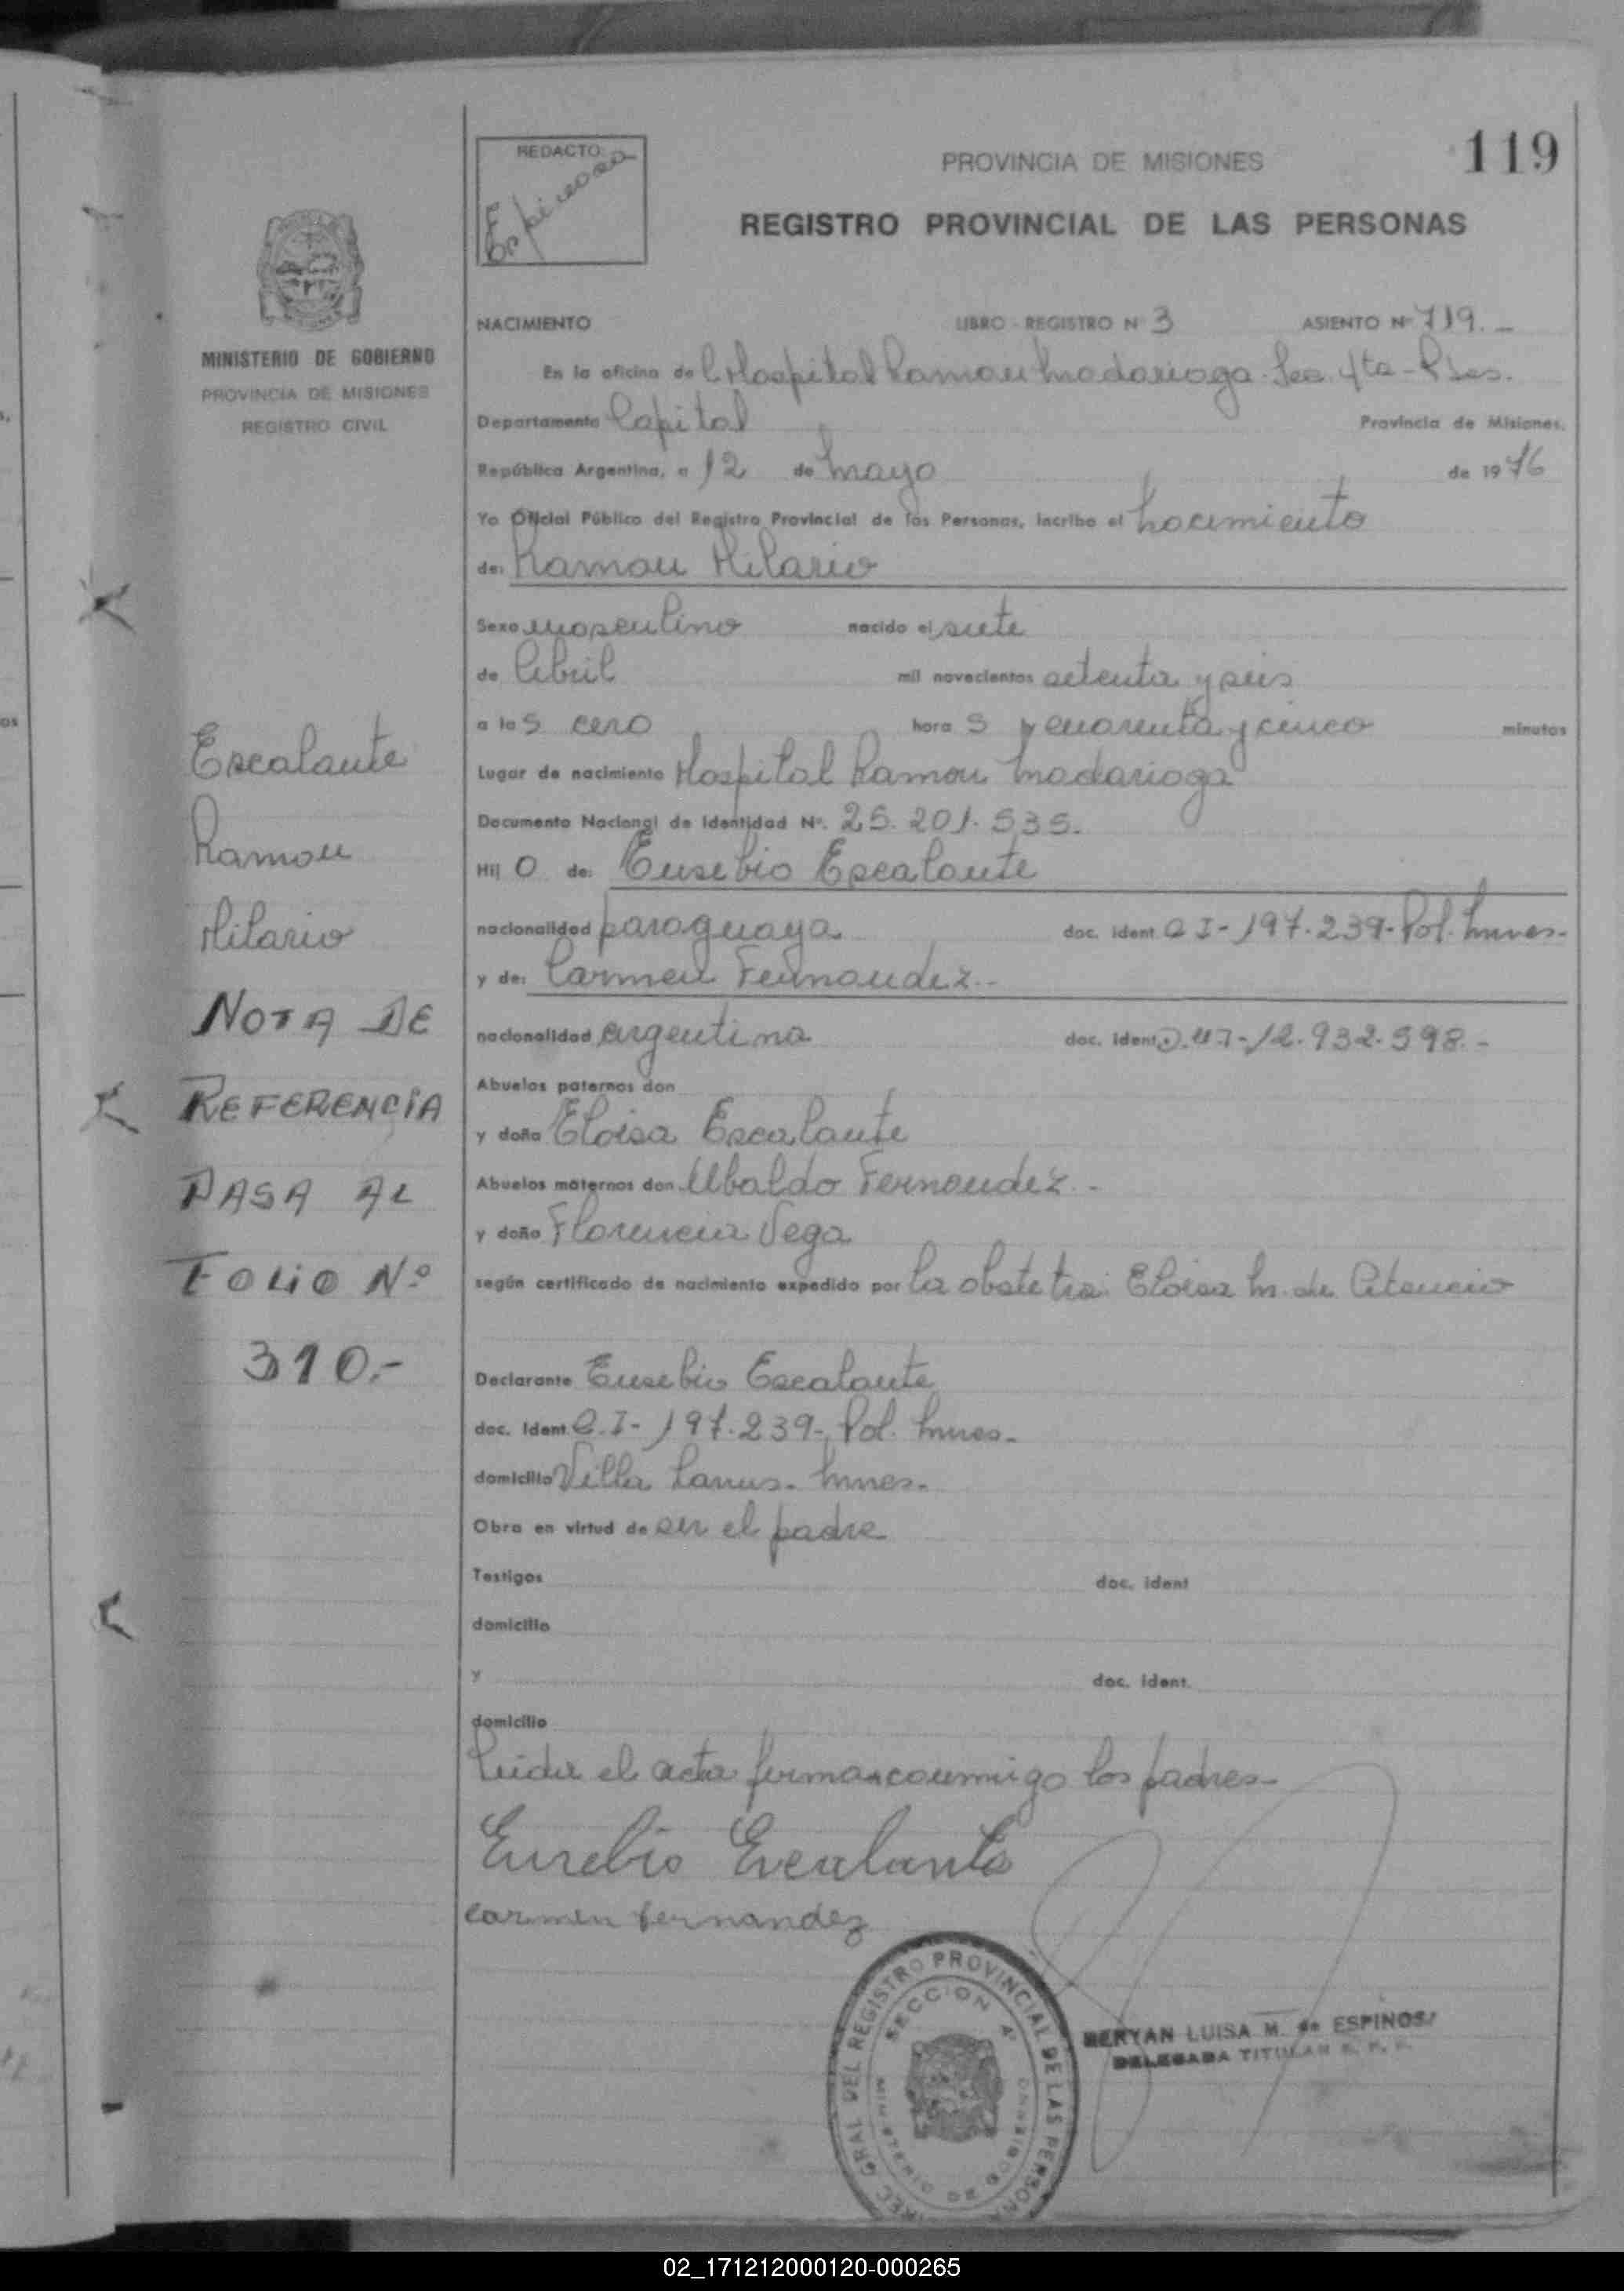 119
REDACTO:
Espinosa
PROVINCIA DE MISIONES
REGISTRO PROVINCIAL DE LAS PERSONAS
MINISTERIO DE GOBIERNO
PROVINCIA DE MISIONES
REGISTRO CIVIL
Escalante
Ramon
Hilario
NOTA DE
REFERENCIA
PASA AL
FOLIO Nº
310.-
NACIMIENTO LIBRO - REGISTRO N 3 ASIENTO Nº 719.-
En la oficina del Hospital Ramon Madariaga - Sec. 4ta - Pdas.
Departamento Capital Provincia de Misiones.
República Argentina, a 12 de Mayo de 1976
Yo Oficial Público del Registro Provincial de las Personas, incribo el nacimiento
de: Ramon Hilario
Sexo masculino nacido el siete
de Abril mil novecientos setenta y seis
a las cero horas y cuarenta y cinco minutos
Lugar de nacimiento Hospital Ramon Madariaga
Documento Nacional de Identidad Nº. 25.201.535.
Hijo de: Eusebio Escalante
nacionalidad paraguaya doc. ident. C I - 197.239 - Pol. Mnes-
y de: Carmen Fernandez.-
nacionalidad argentina doc. ident. 12.932.598.-
Abuelos paternos don
y doña Eloisa Escalante
Abuelos maternos don Ubaldo Fernandez.-
y doña Florencia Vega
según certificado de nacimiento expedido por la obstetra: Eloisa M. de Atencio
Declarante Eusebio Escalante
doc. Ident. C.I - 197.239 - Pol. Mnes-
domicilio Villa Lanus - Mnes.
Obra en virtud de ser el padre
Testigos doc. ident
domicilio
y doc. ident.
domicilio
Leida el acta firman conmigo los padres-
Eusebio Escalante
carmen fernandez
DIREC GRAL DEL REGISTRO PROVINCIAL DE LAS PERSONAS
SECCION 4ª
BERYAN LUISA M. de ESPINOSA
DELEGADA TITULAR R. P. P.
02_171212000120-000265